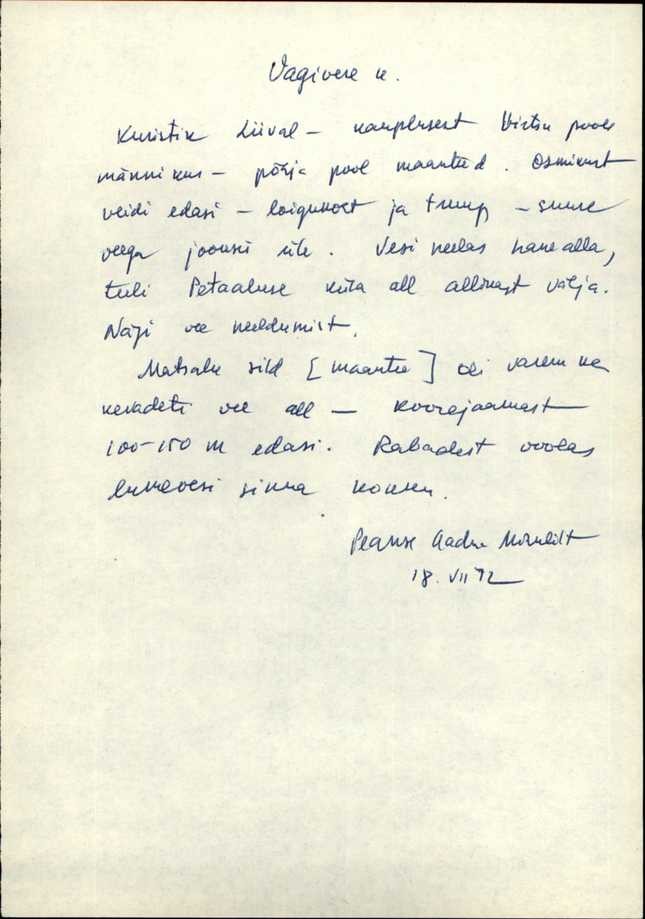 Vagivere k.
Kuristik Liival – kauplusest Virtsu poole
männikus – põhja pool maanteed. Osmikust
veidi edasi – loigukost ja trump – suure
veega jooksis üle. Vesi neelas maa alla,
tuli Petaaluse küla all allikast välja.
Näji vee neeldumist.
Matsalu sild [maantee] oli varem ka
kevadeti vee all – koorejaamast
100–150 m edasi. Rabadest voolas
lumevesi sinna kokku.
18. VII 72